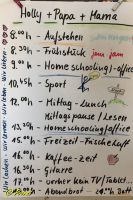 Holly + Papa + Mama
8:00 h Aufstehen
8:30 h Frühstück jam jam
9.00 h Homeschooling/-office
10.45 h - Sport
12.00 h - Mittag - Lunch
Mittagspause / Lesen
13.00 h - Homeschooling/office
15.00 h - Freizeit - Frische Luft
16.00 h Kaffee-zeit
16.30 h Gitarre
17.00 h - vorher kein TV/Tablet
18.00 h Abendbrot